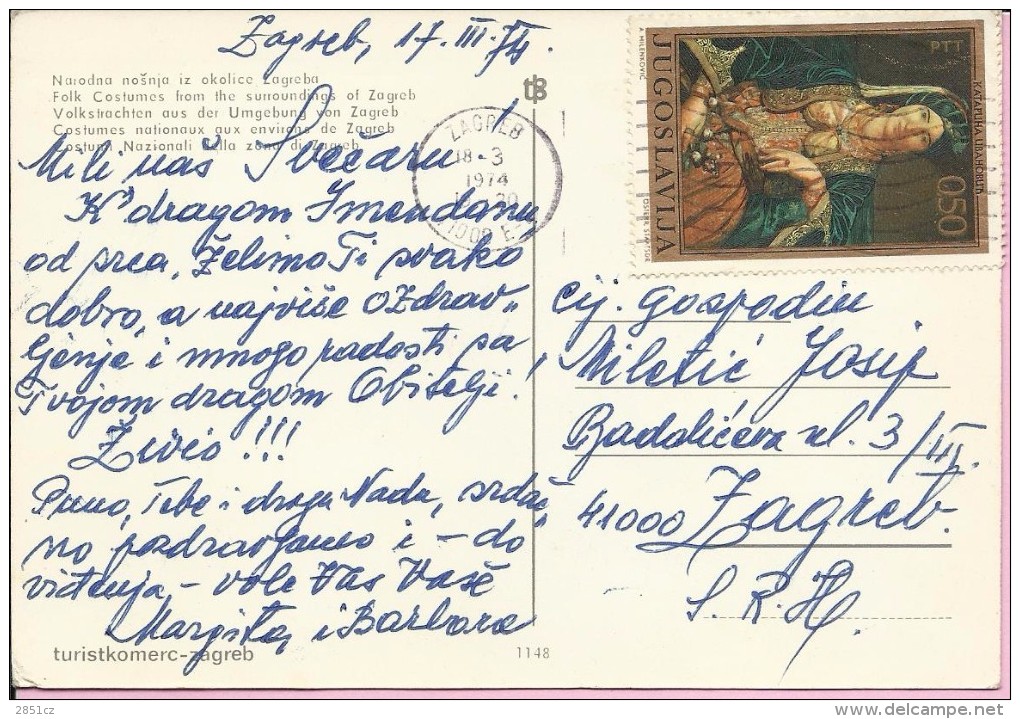 Zagreb, 17. III. 74.
Narodna nošnja iz okolice Zagreba
Folk Costumes from the surroundings of Zagreb
Volkstrachten aus der Umgebung von Zagreb
Costumes nationaux aux environs de Zagreb
Costumi Nazionali della zona di Zagreb
Mili naš Svečaru
K' dragom Imendanu
od srca, želimo Ti svako
dobro, a najviše ozdrav„
ljenje i mnogo radosti sa
Tvojom dragom Obitelji!
Živio!!!
Puno, Tebe i dragu Nadu, srdač„
no pozdravljamo i - do
viđenja - vole Vas Vaše
Margita, i Barbara
turistkomerc-zagreb
1148
ZAGREB
18-3
1974
JUGOSLAVIJA
A. MILENKOVIĆ
PTT
0.50
Cij. Gospodin
Miletić Josip
Badalićeva ul. 3/III.
41000 Zagreb.
S. R. H.
2851cz
delcampe.net